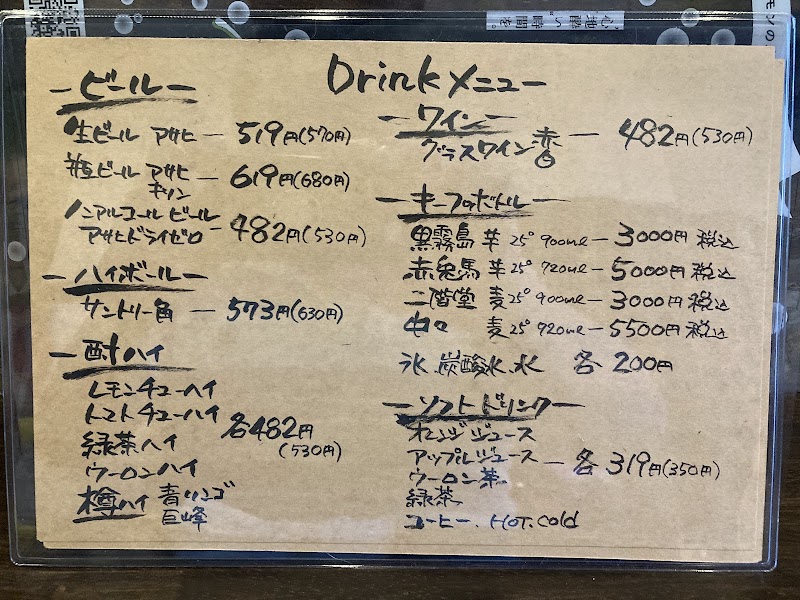 心地酔い時間を。
モンの
Drinkメニュー
ービールー
生ビール アサヒ ー 519円(570円)
瓶ビール アサヒ
キリン ー 619円(680円)
ノンアルコールビール
アサヒドライゼロ ー 482円(530円)
ーハイボールー
サントリー角 ー 573円(630円)
ー酎ハイ
レモンチューハイ
トマトチューハイ
緑茶ハイ
ウーロンハイ
各482円
(530円)
樽ハイ 青リンゴ
巨峰
ーワインー
グラスワイン 赤
白 ー 482円(530円)
ーキープボトルー
黒霧島 芋 25° 900ml ー 3000円 税込
赤兎馬 芋 25° 720ml ー 5000円 税込
二階堂 麦 25° 900ml ー 3000円 税込
中々 麦 25° 920ml ー 5500円 税込
氷.炭酸水.水 各 200円
ーソフトドリンクー
オレンジジュース
アップルジュース ー 各 319円(350円)
ウーロン茶
緑茶
コーヒー. HOT. cold